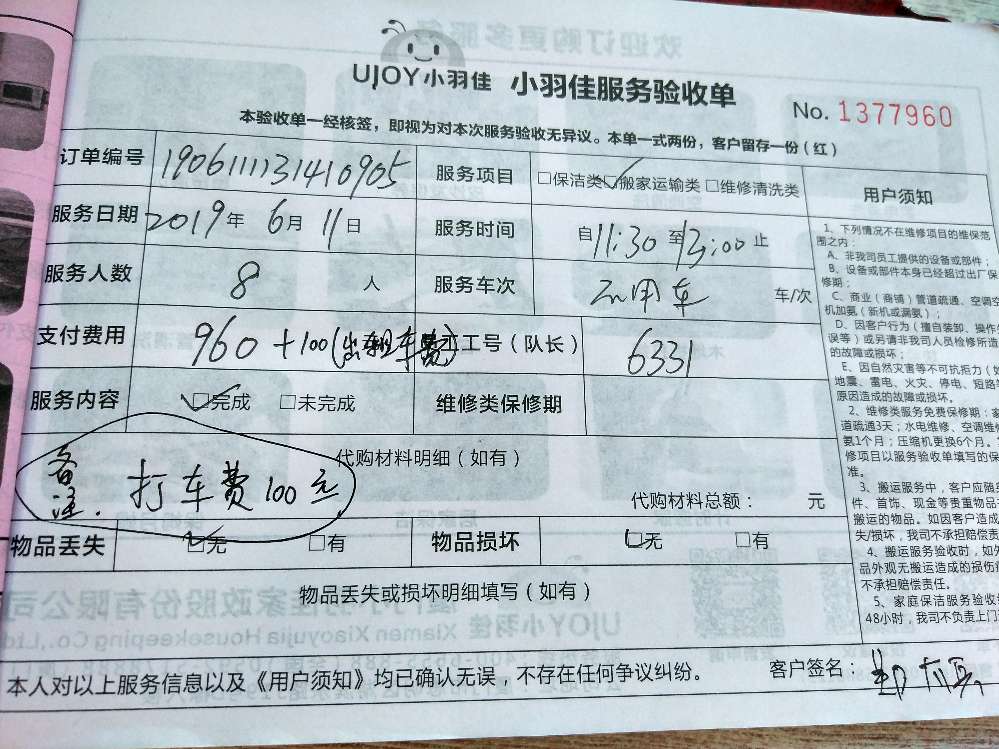 UJOY小羽佳 小羽佳服务验收单
No. 1377960
本验收单一经核签，即视为对本次服务验收无异议。本单一式两份，客户留存一份（红）
订单编号 1906111131410905 服务项目 □保洁类 ☑搬家运输类 □维修清洗类
服务日期 2019年6月11日 服务时间 自11:30至13:00止
服务人数 8人 服务车次 用车 车/次
支付费用 960+100(出租车费) 工号（队长） 6331
服务内容 ☑完成 □未完成 维修类保修期
代购材料明细（如有）
备注. 打车费100元
代购材料总额： 元
物品丢失 ☑无 □有 物品损坏 ☑无 □有
物品丢失或损坏明细填写（如有）
本人对以上服务信息以及《用户须知》均已确认无误，不存在任何争议纠纷。 客户签名：
用户须知
1、下列情况不在维修项目的维保范
围之内：
A、非我司员工提供的设备或部件；
B、设备或部件本身已经超过出厂保
修期；
C、商业（商铺）管道疏通、空调空
机加氨（新机或漏氨）；
D、因客户行为（擅自装卸、操作
误等）或另请非我司人员检修所造
的故障或损坏；
E、因自然灾害等不可抗拒力（如
地震、雷电、火灾、停电、短路等
原因造成的故障或损坏。
2、维修类服务免费保修期：
道疏通3天；水电维修、空调维
氨1个月；压缩机更换6个月。
修项目以服务验收单填写的保
准。
3、搬运服务中，客户应随身
件、首饰、现金等贵重物品
搬运的物品。如因客户造成
失/损坏，我司不承担赔偿责
4、搬运服务验收时，如外
品外观无搬运造成的损伤
不承担赔偿责任。
5、家庭保洁服务验收
48小时，我司不负责上门